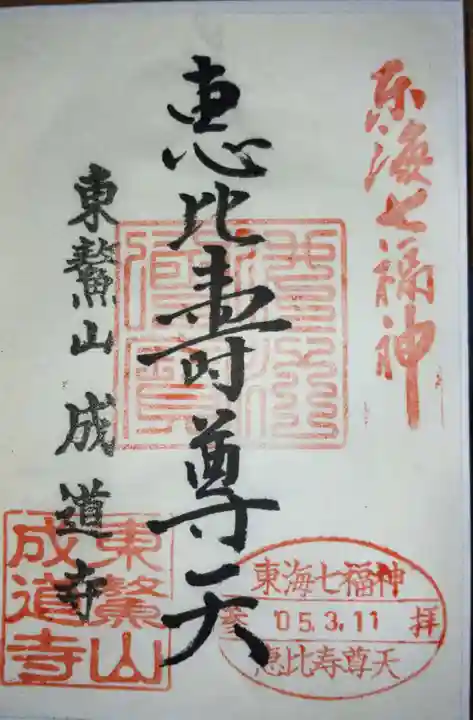 东海七福神
恵比寿尊天
東鰲山 成道寺
東鰲山
成道寺
東海七福神
参 '05.3.11 拝
恵比寿尊天